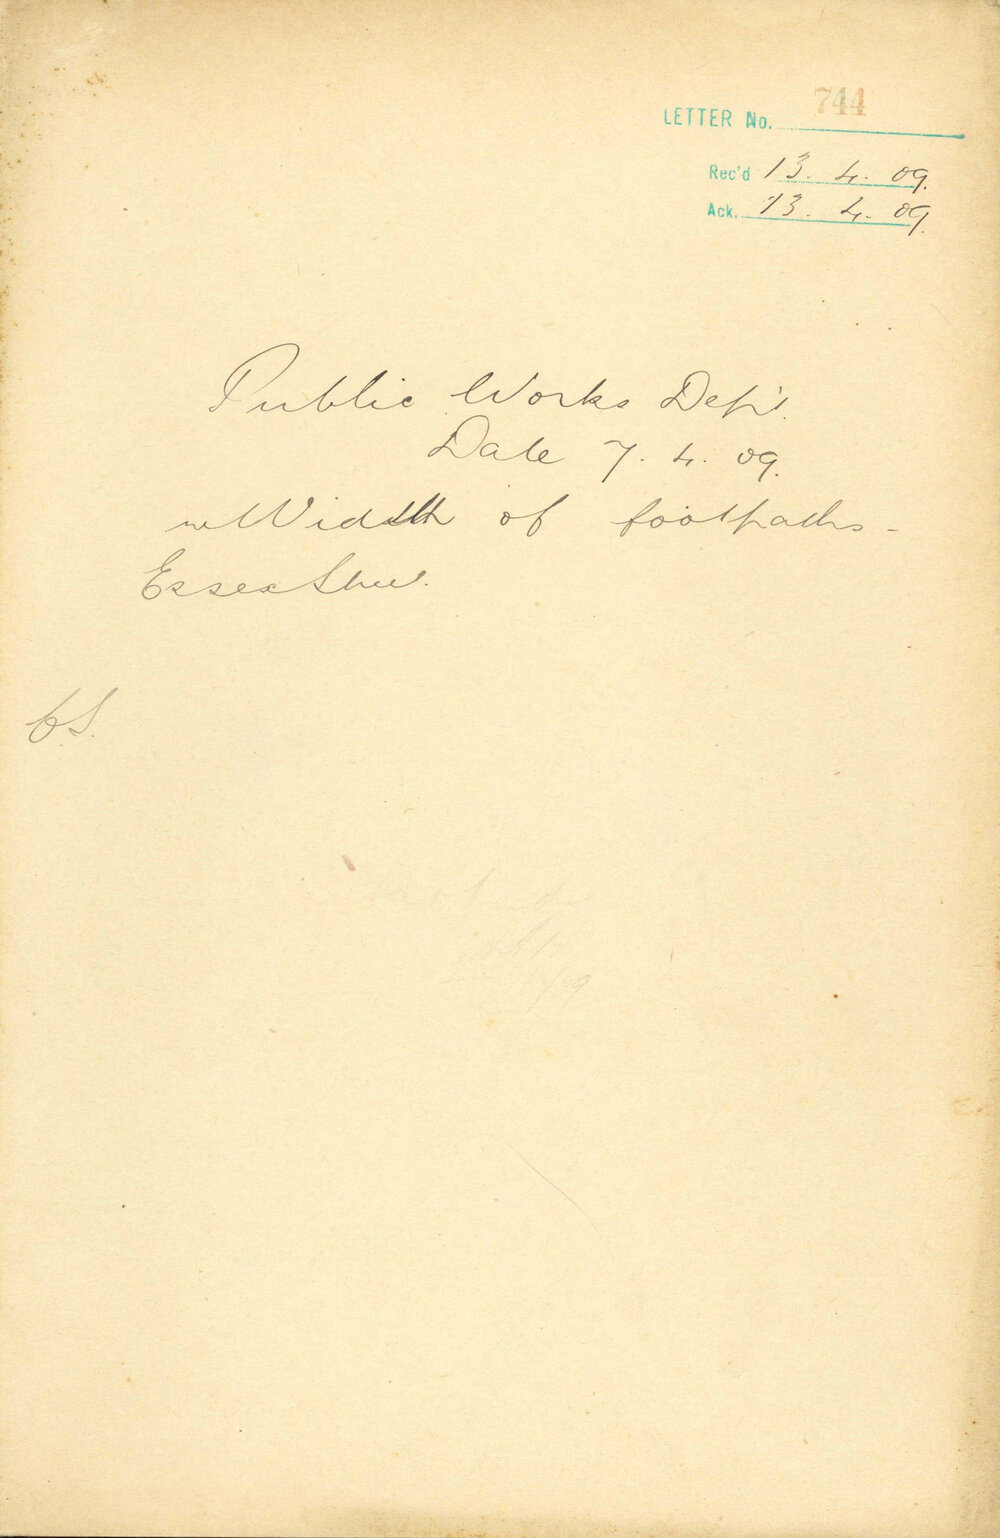 LETTER No. 744
Rec'd 13. 4. 09.
Ack. 13. 4. 09.
Public Works Dep't.
Date 7. 4. 09.
re Width of footpaths -
Essex Street.
C.S.
Noted